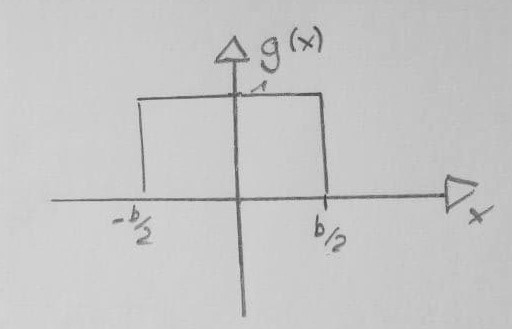 g(x)
1
-b/2
b/2
x